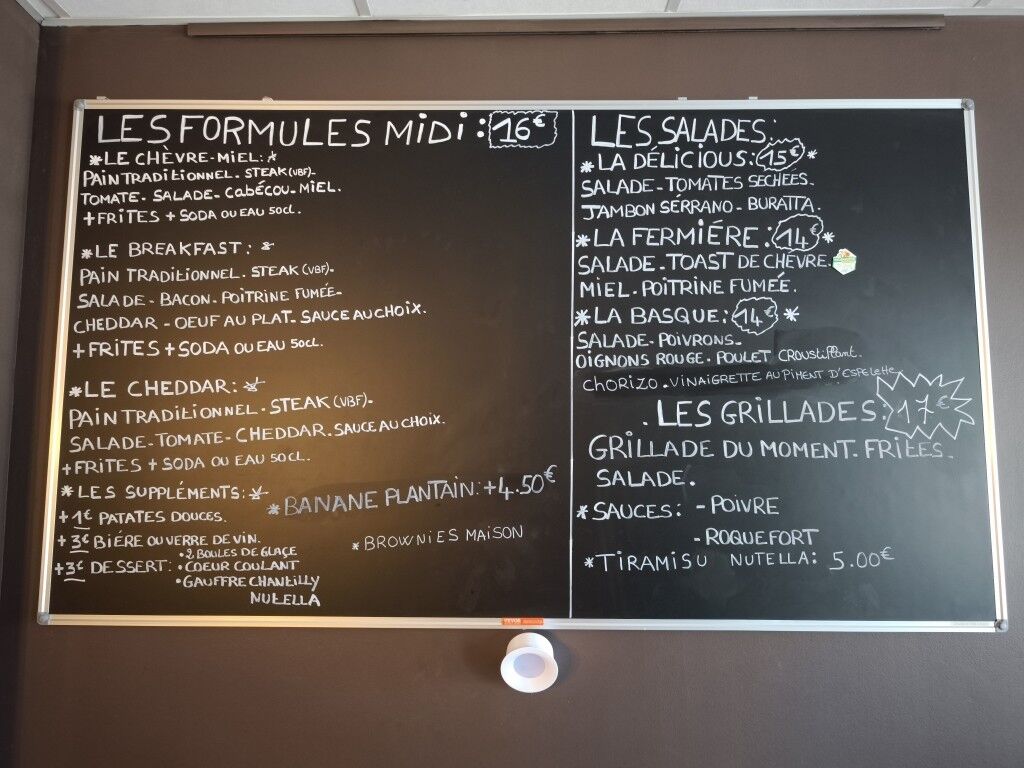 LES FORMULES MIDI : 16€
*LE CHÈVRE-MIEL: *
PAIN TRADITIONNEL. STEAK (VBF)-
TOMATE- SALADE- CABÉCOU-MIEL.
+FRITES + SODA OU EAU 50CL.
*LE BREAKFAST: *
PAIN TRADITIONNEL. STEAK (VBF)-
SALADE- BACON- POITRINE FUMÉE-
CHEDDAR - OEUF AU PLAT- SAUCE AU CHOIX.
+FRITES + SODA OU EAU 50CL.
*LE CHEDDAR: *
PAIN TRADITIONNEL. STEAK (VBF)-
SALADE-TOMATE-CHEDDAR. SAUCE AU CHOIX.
+FRITES + SODA OU EAU 50CL.
*LES SUPPLÉMENTS: *
+1€ PATATES DOUCES.
+3€ BIÉRE OU VERRE DE VIN.
+3€ DESSERT: •2 BOULES DE GLAÇE
•COEUR COULANT
•GAUFFRE CHANTILLY
NUTELLA
*BANANE PLANTAIN: +4.50€
*BROWNIES MAISON
LES SALADES:
*LA DÉLICIOUS: 15€ *
SALADE-TOMATES SECHÉES-
JAMBON SÉRRANO- BURATTA.
*LA FERMIÉRE: 14€ *
SALADE-TOAST DE CHÈVRE.
MIEL-POITRINE FUMÉE.
*LA BASQUE: 14€ *
SALADE-POIVRONS-
OIGNONS ROUGE- POULET CROUSTILLANT.
CHORIZO. VINAIGRETTE AU PIMENT D'ESPELETTE
. LES GRILLADES: 17€
GRILLADE DU MOMENT- FRITES-
SALADE.
*SAUCES: - POIVRE
-ROQUEFORT
*TIRAMISU NUTELLA: 5.00€